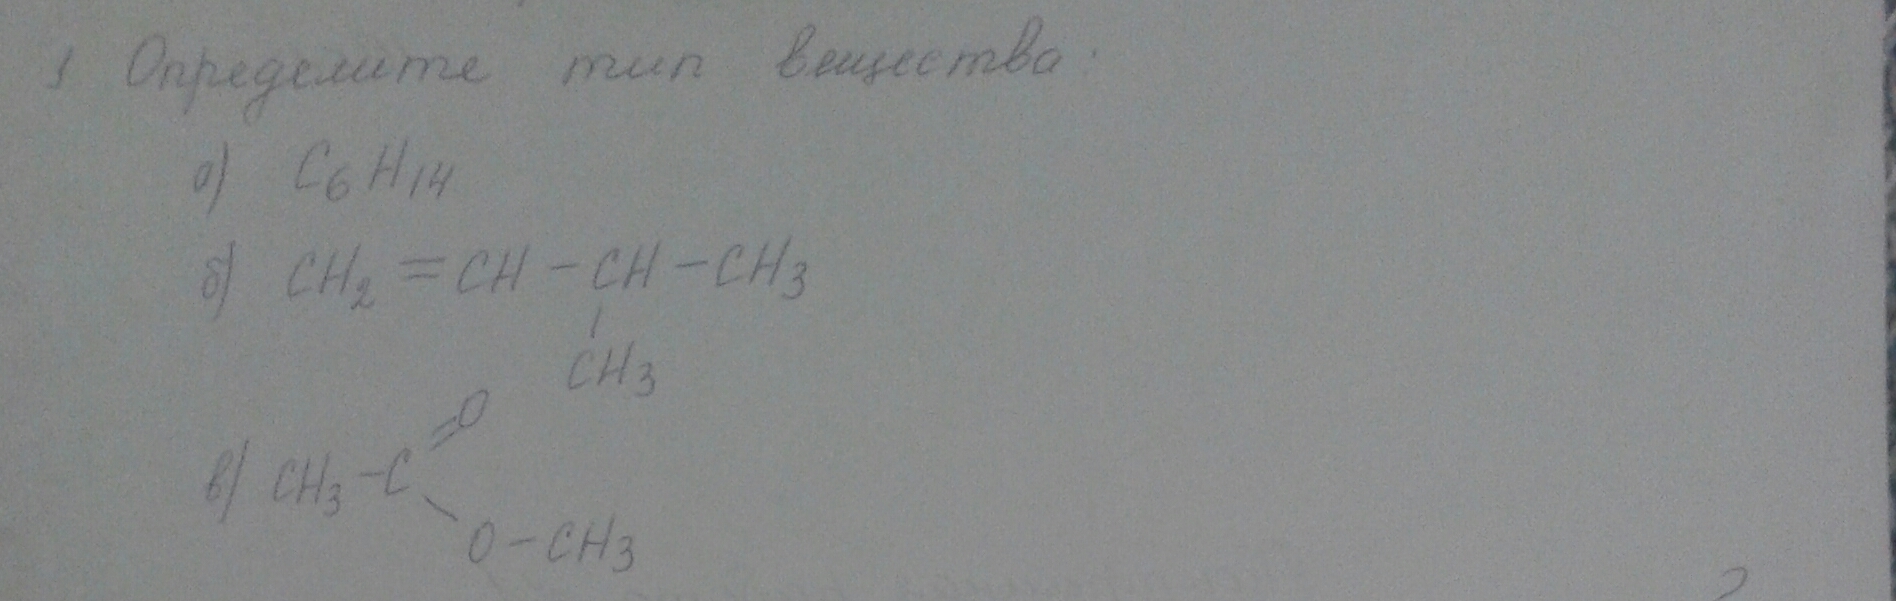 1 Определите тип вещества:
а) C6H14
б) CH2=CH-CH-CH3
CH3
в) CH3-C=O
O-CH3
2